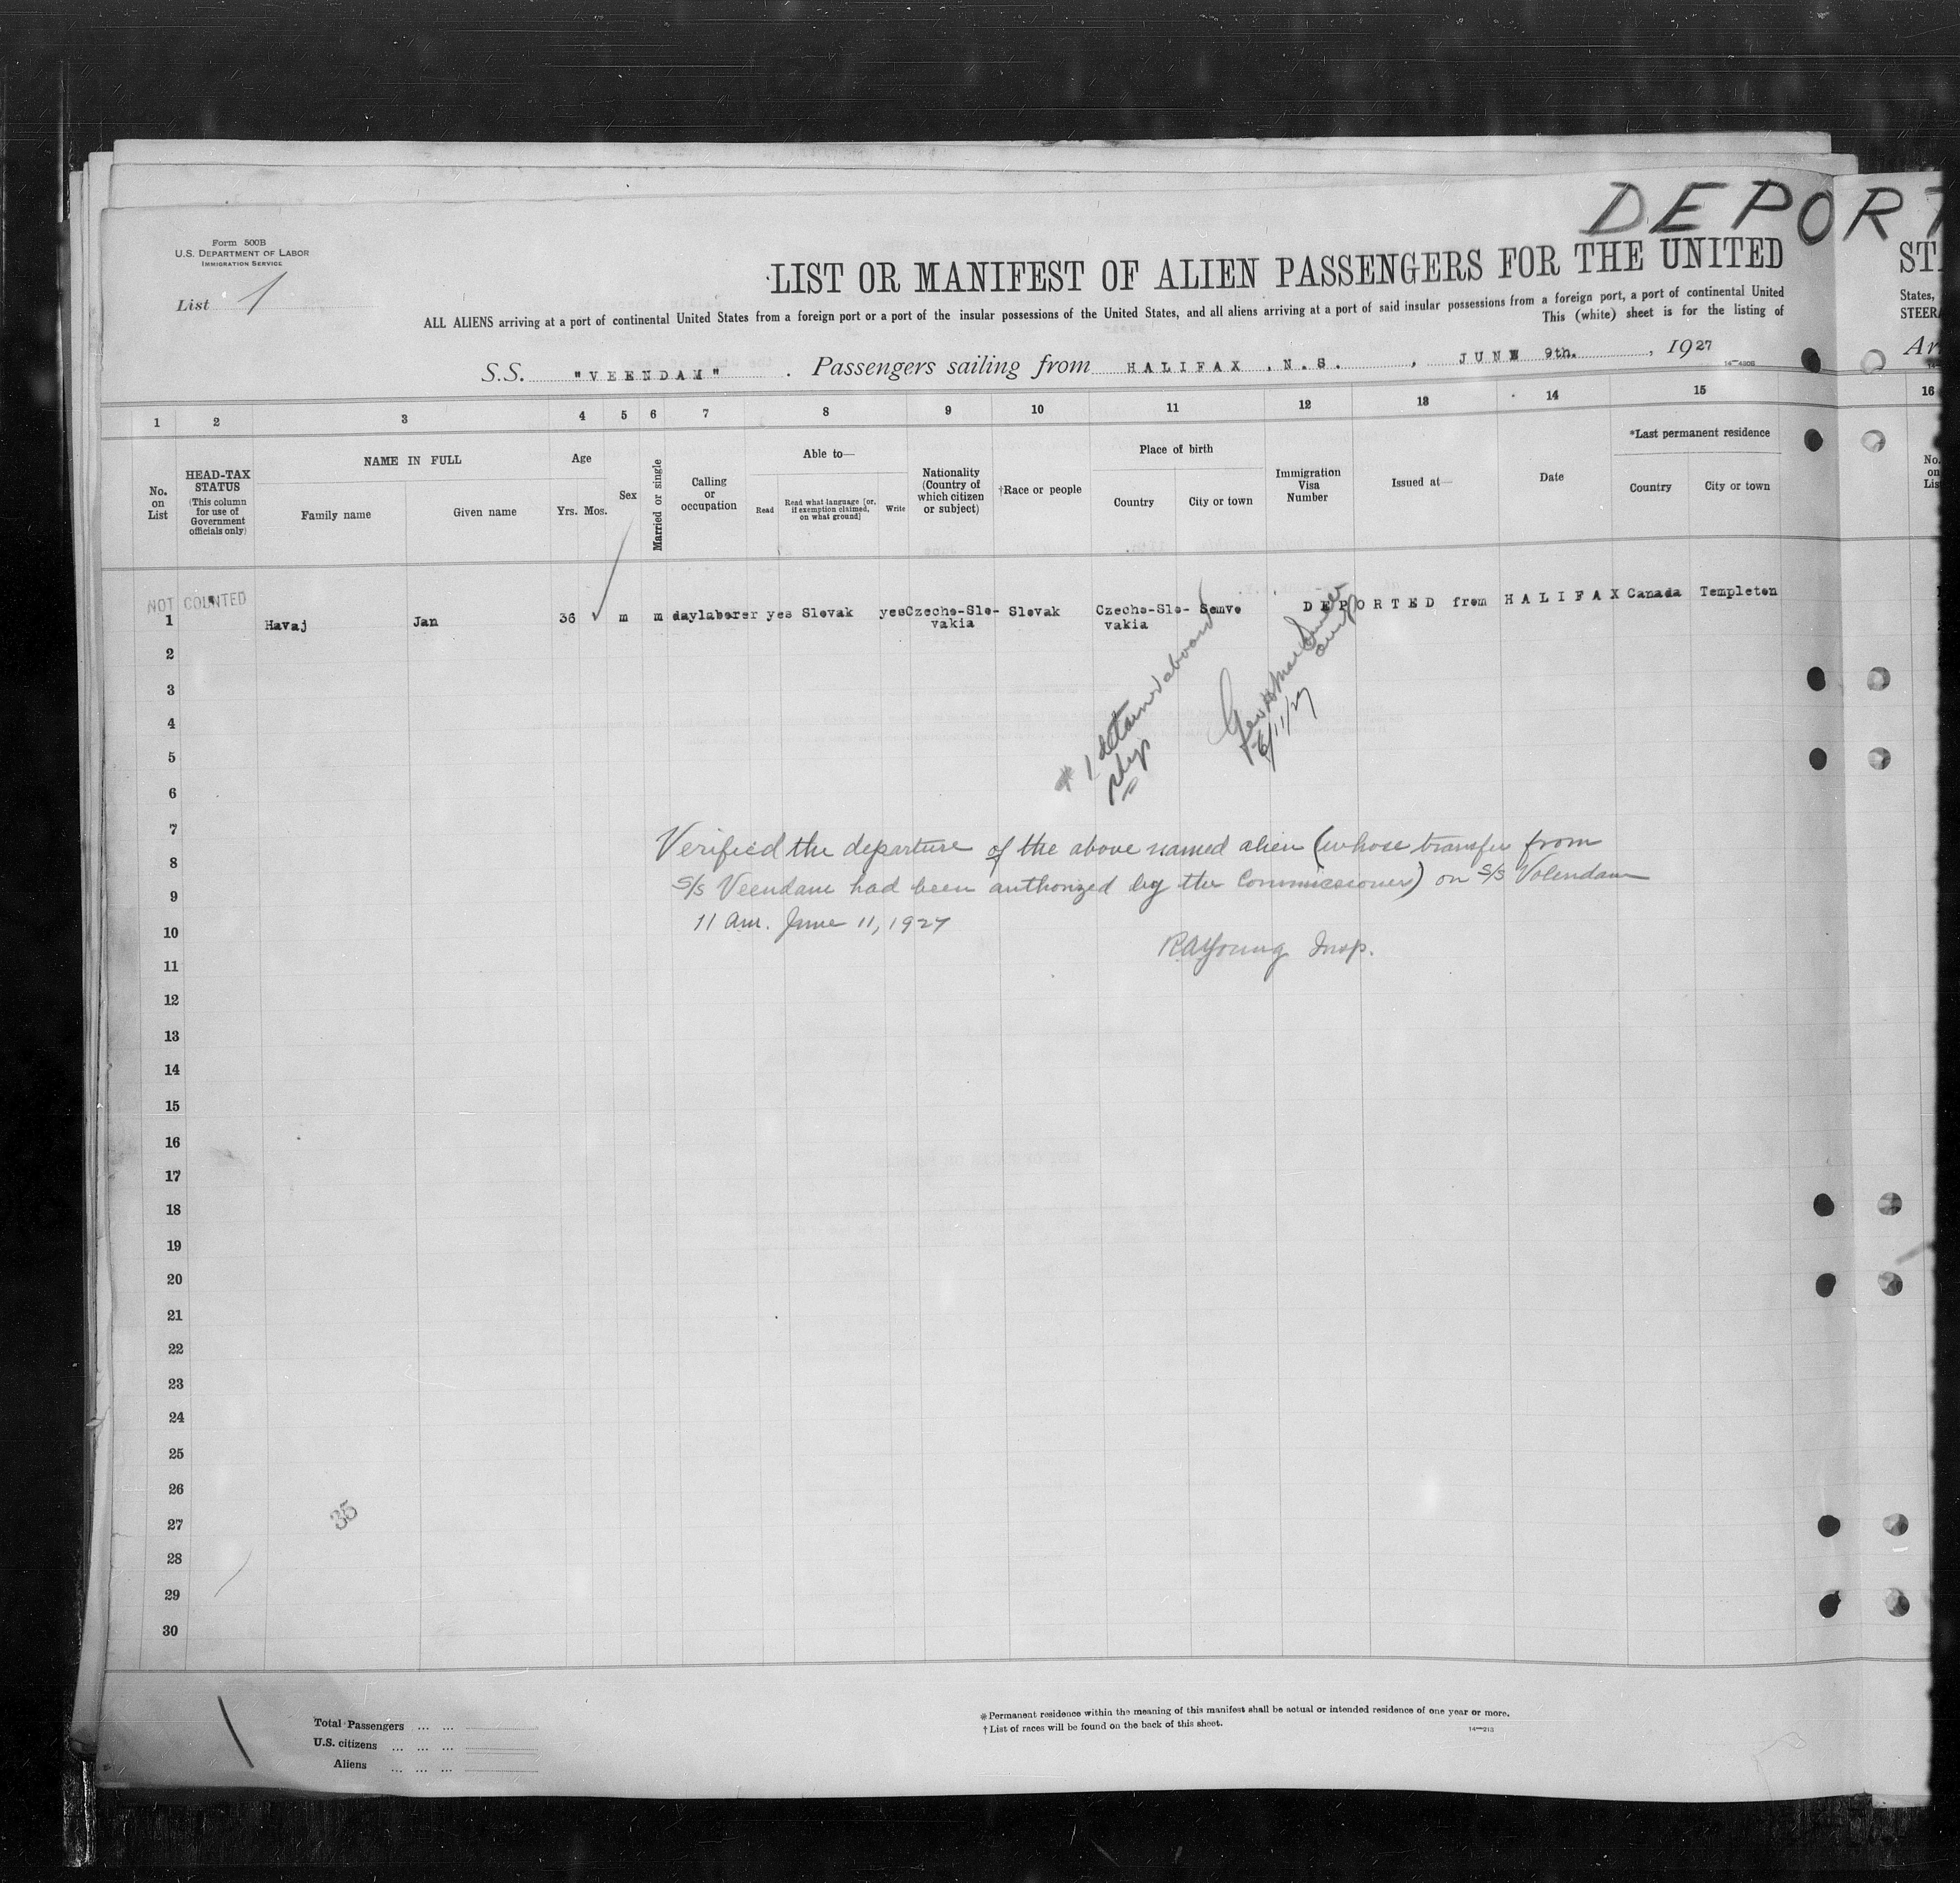 DEPORT
Form 500B
U.S. DEPARTMENT OF LABOR
IMMIGRATION SERVICE
List 1
LIST OR MANIFEST OF ALIEN PASSENGERS FOR THE UNITED
ST
ALL ALIENS arriving at a port of continental United States from a foreign port or a port of the insular possessions of the United States, and all aliens arriving at a port of said insular possessions from a foreign port, a port of continental United
States,
This (white) sheet is for the listing of
STEER
S.S. "VEENDAM" . Passengers sailing from HALIFAX , N.S. , JUNE 9th. , 1927
Ar
1 2 3 4 5 6 7 8 9 10 11 12 13 14 15 16
No. on List
HEAD-TAX STATUS (This column for use of Government officials only)
NAME IN FULL
Family name
Given name
Age
Yrs. Mos.
Sex
Married or single
Calling or occupation
Able to—
Read
Read what language [or, if exemption claimed, on what ground]
Write
Nationality (Country of which citizen or subject)
†Race or people
Place of birth
Country
City or town
Immigration Visa Number
Issued at—
Date
*Last permanent residence
Country
City or town
No. on Lis
NOT COUNTED
1 Havaj Jan 36 m m daylaborer yes Slovak yes Czecho-Slo- Slovak Czecho-Slo- Semve DEPORTED from HALIFAX Canada Templeton
vakia vakia
2
3
* 1 detained aboard
ship
6/11/27
4
5
6
7
Verified the departure of the above named alien (whose transfer from
8
S/S Veendam had been authorized by the Commissioner) on S/S Volendam
9
11 am. June 11, 1927
10
RAYoung Insp.
11
12
13
14
15
16
17
18
19
20
21
22
23
24
25
26
35
27
28
29
30
Total Passengers ... ...
U.S. citizens ... ... ...
Aliens ... ... ...
*Permanent residence within the meaning of this manifest shall be actual or intended residence of one year or more.
†List of races will be found on the back of this sheet.
14—213